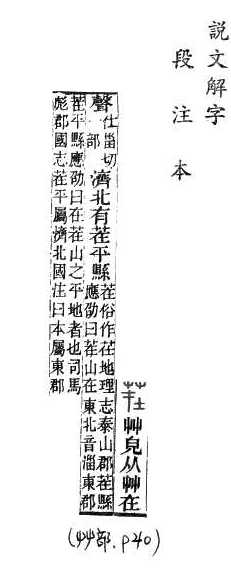 説文解字
段注本
茬艸皃从艸在
聲仕甾切一部濟北有茬平縣茬俗作茌地理志泰山郡茬縣
應劭曰茬山在東北音淄東郡
茬平縣應劭曰在茬山之平地者也司馬
彪郡國志茬平屬濟北國注曰本屬東郡
(艸部.p40)